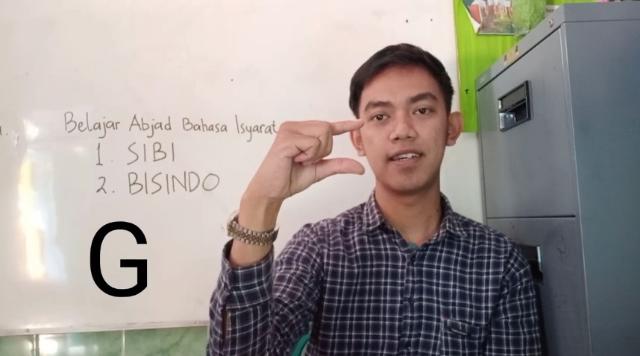 Belajar Abjad Bahasa Isyarat
1. SIBI
2. BISINDO
G